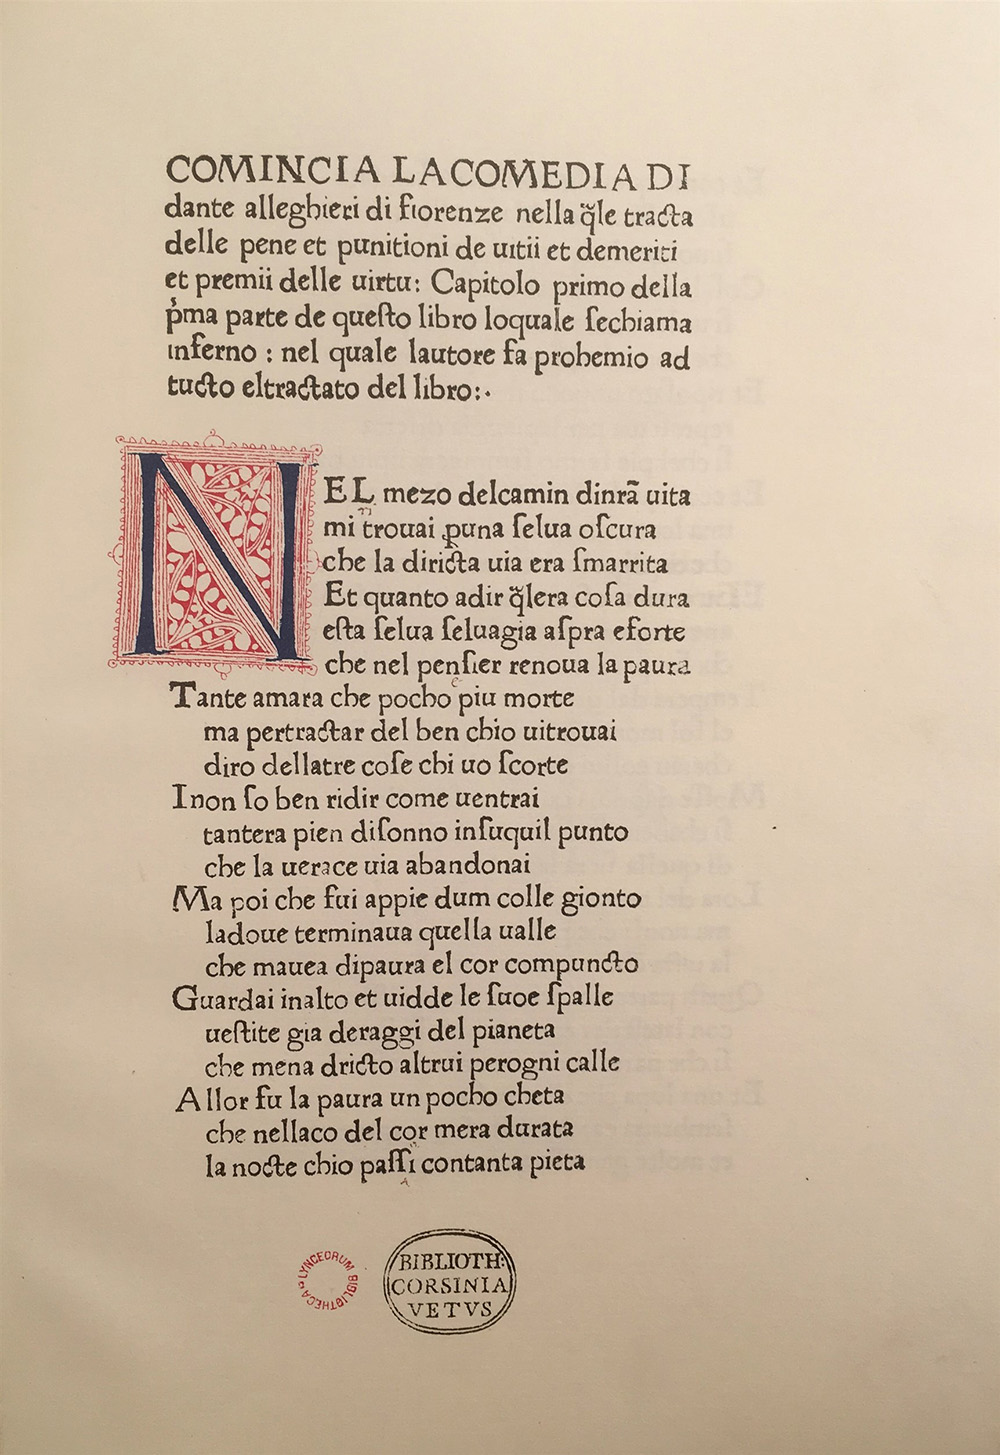 COMINCIA LACOMEDIA DI
dante alleghieri di fiorenze nella q̃le tracta
delle pene et punitioni de uitii et demeriti
et premii delle uirtu: Capitolo primo della
p̓ma parte de queſto libro loquale ſechiama
inferno : nel quale lautore fa prohemio ad
tucto eltractato del libro:·
NEL mezo delcamin dinr̃a uita
mi trouai ꝑuna ſelua oſcura
che la diricta uia era ſmarrita
Et quanto adir q̃lera coſa dura
eſta ſelua ſeluagia aſpra eforte
che nel penſier renoua la paura
Tante amara che pocho piu morte
ma pertractar del ben chio uitrouai
diro dellatre coſe chi uo ſcorte
Inon ſo ben ridir come uentrai
tantera pien diſonno inſuquil punto
che la uerace uia abandonai
Ma poi che fui appie dum colle gionto
ladoue terminaua quella ualle
che mauea dipaura el cor compuncto
Guardai inalto et uidde le ſuoe ſpalle
ueſtite gia deraggi del pianeta
che mena dricto altrui perogni calle
Allor fu la paura un pocho cheta
che nellaco del cor mera durata
la nocte chio paſſi contanta pieta
LYNCEORUM BIBLIOTHECA
BIBLIOTH:
CORSINIA
VETVS